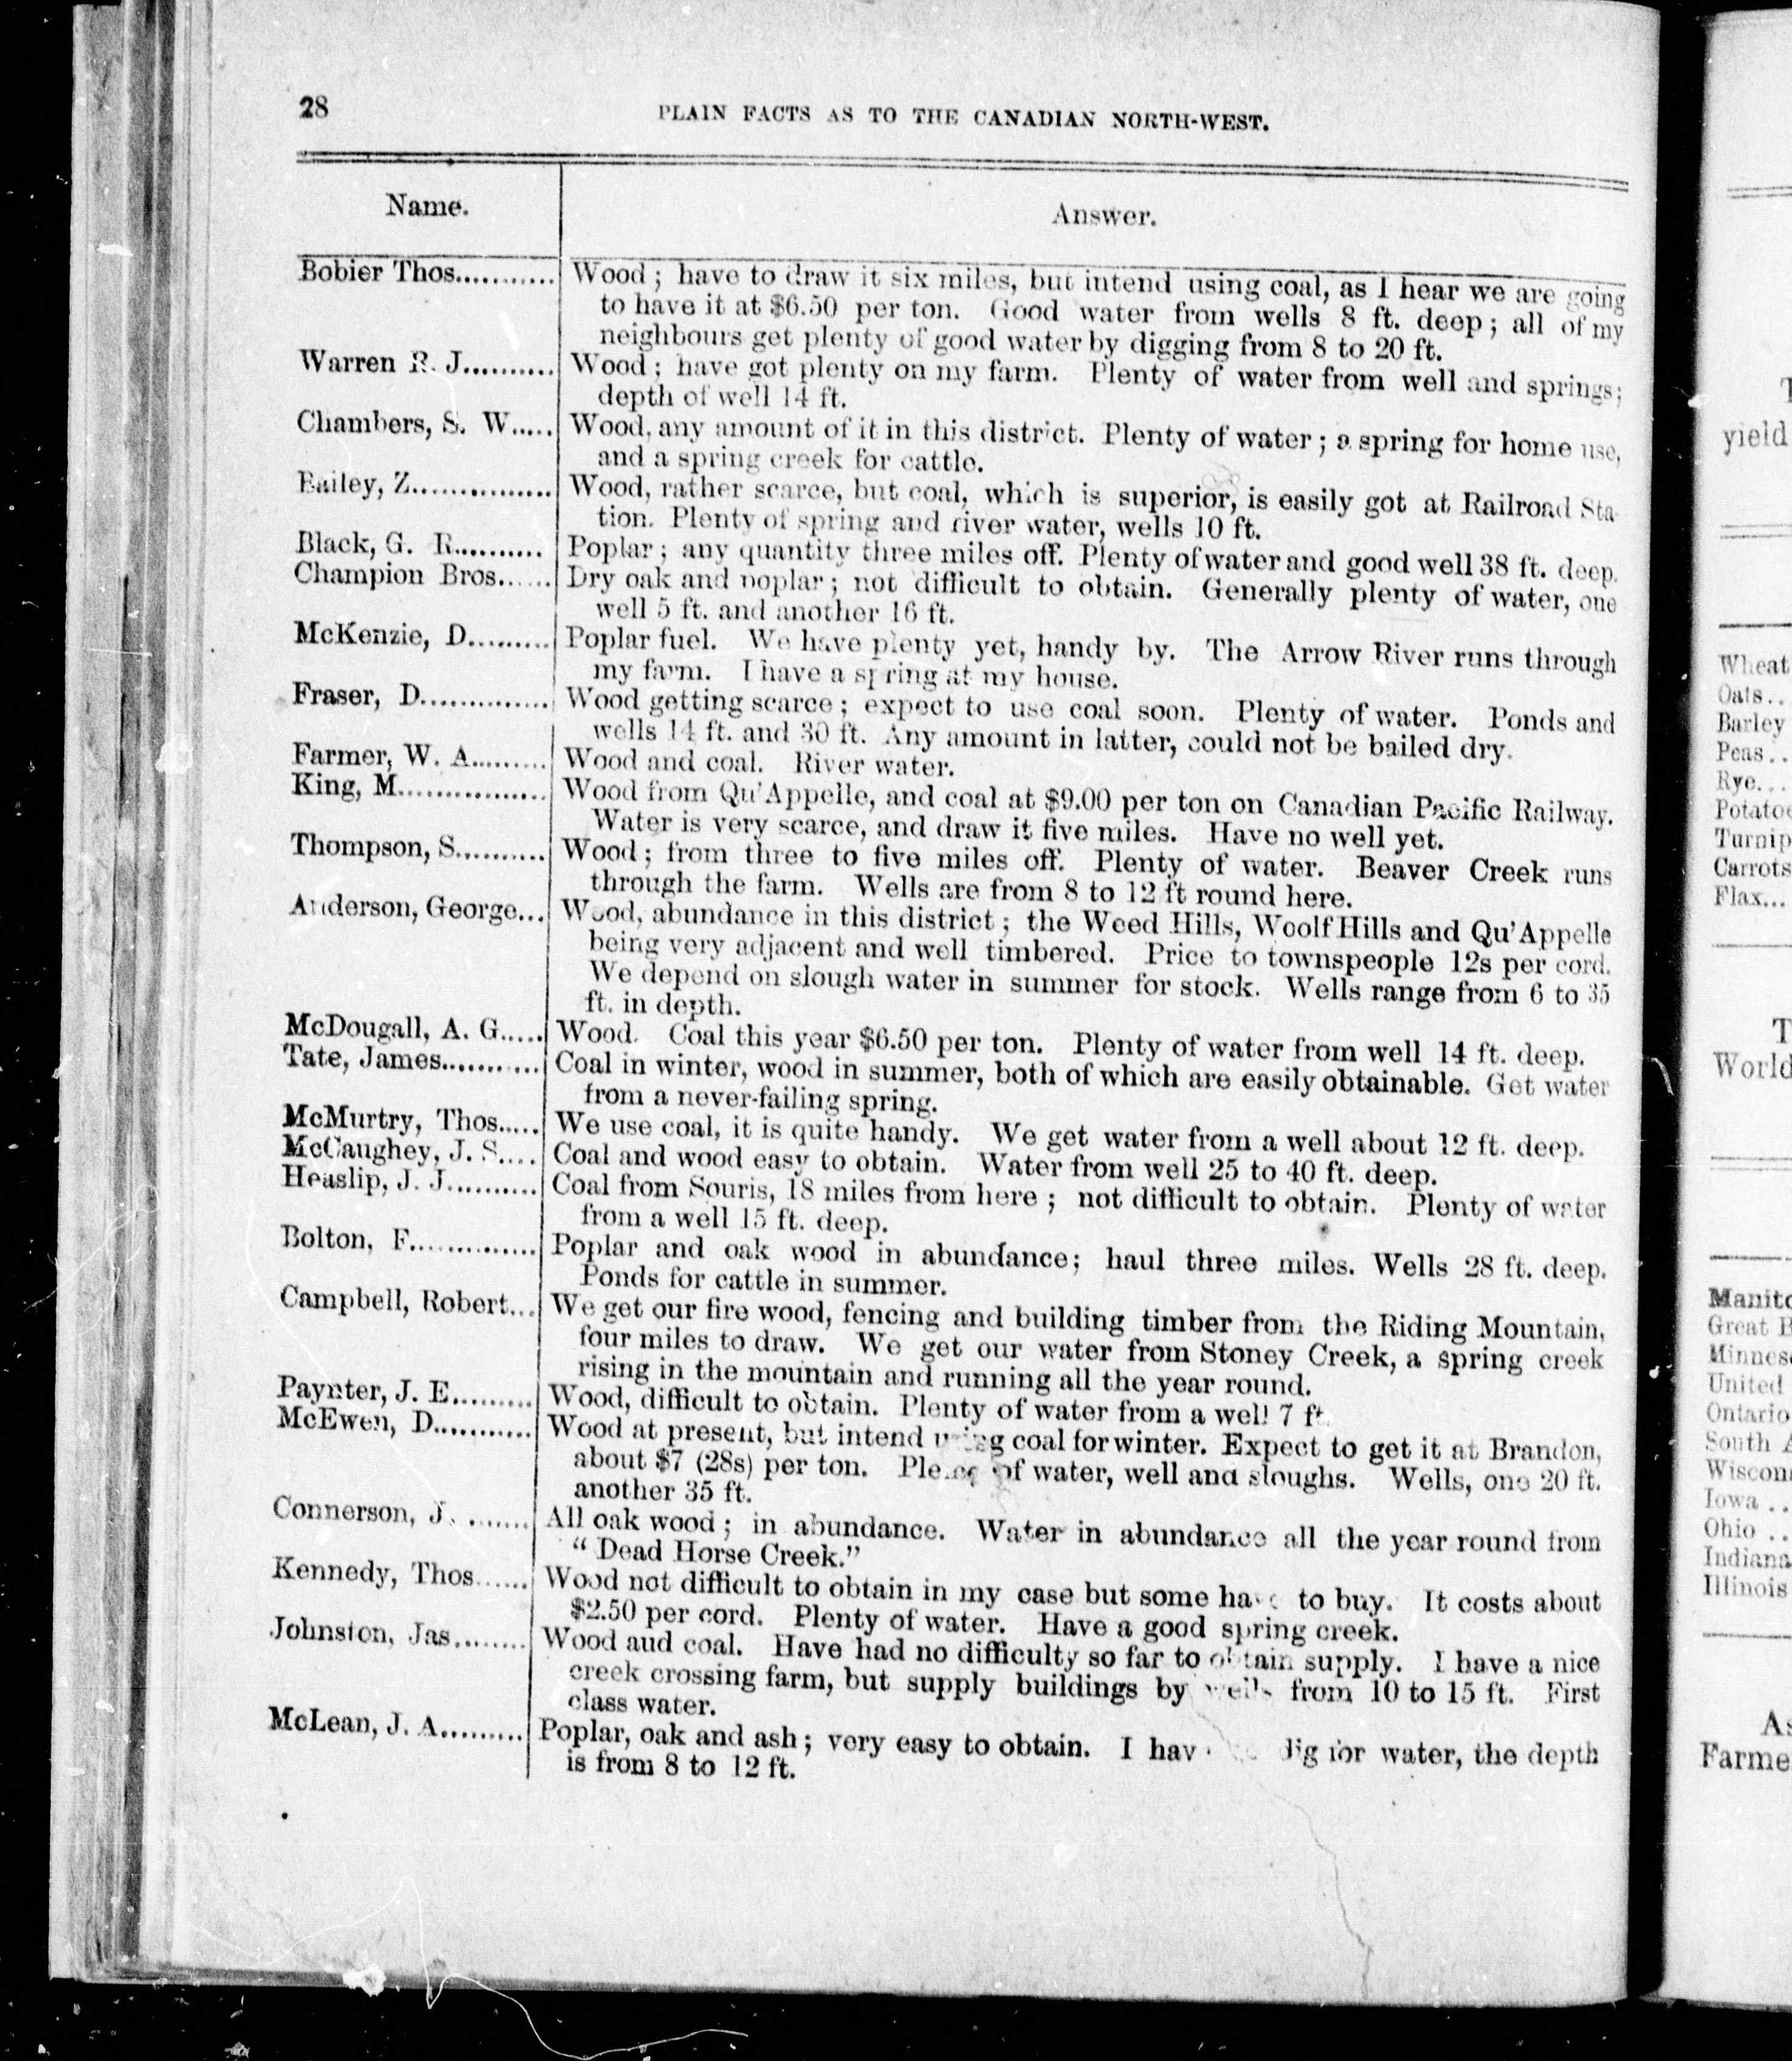 28
PLAIN FACTS AS TO THE CANADIAN NORTH-WEST.
Name.
Answer.
Bobier Thos........... Wood ; have to draw it six miles, but intend using coal, as I hear we are going
to have it at $6.50 per ton. Good water from wells 8 ft. deep ; all of my
neighbours get plenty of good water by digging from 8 to 20 ft.
Warren R. J.......... Wood ; have got plenty on my farm. Plenty of water from well and springs ;
depth of well 14 ft.
Chambers, S. W..... Wood, any amount of it in this district. Plenty of water ; a spring for home use,
and a spring creek for cattle.
Bailey, Z............... Wood, rather scarce, but coal, which is superior, is easily got at Railroad Sta
tion. Plenty of spring and river water, wells 10 ft.
Black, G. R.......... Poplar ; any quantity three miles off. Plenty of water and good well 38 ft. deep.
Champion Bros...... Dry oak and poplar ; not difficult to obtain. Generally plenty of water, one
well 5 ft. and another 16 ft.
McKenzie, D......... Poplar fuel. We have plenty yet, handy by. The Arrow River runs through
my farm. I have a spring at my house.
Fraser, D.............. Wood getting scarce ; expect to use coal soon. Plenty of water. Ponds and
wells 14 ft. and 30 ft. Any amount in latter, could not be bailed dry.
Farmer, W. A......... Wood and coal. River water.
King, M................ Wood from Qu'Appelle, and coal at $9.00 per ton on Canadian Pacific Railway.
Water is very scarce, and draw it five miles. Have no well yet.
Thompson, S.......... Wood ; from three to five miles off. Plenty of water. Beaver Creek runs
through the farm. Wells are from 8 to 12 ft round here.
Anderson, George... Wood, abundance in this district ; the Weed Hills, Woolf Hills and Qu'Appelle
being very adjacent and well timbered. Price to townspeople 12s per cord.
We depend on slough water in summer for stock. Wells range from 6 to 35
ft. in depth.
McDougall, A. G..... Wood. Coal this year $6.50 per ton. Plenty of water from well 14 ft. deep.
Tate, James........... Coal in winter, wood in summer, both of which are easily obtainable. Get water
from a never-failing spring.
McMurtry, Thos..... We use coal, it is quite handy. We get water from a well about 12 ft. deep.
McCaughey, J. S.... Coal and wood easy to obtain. Water from well 25 to 40 ft. deep.
Heaslip, J. J.......... Coal from Souris, 18 miles from here ; not difficult to obtain. Plenty of water
from a well 15 ft. deep.
Bolton, F.............. Poplar and oak wood in abundance; haul three miles. Wells 28 ft. deep.
Ponds for cattle in summer.
Campbell, Robert... We get our fire wood, fencing and building timber from the Riding Mountain,
four miles to draw. We get our water from Stoney Creek, a spring creek
rising in the mountain and running all the year round.
Paynter, J. E......... Wood, difficult to obtain. Plenty of water from a well 7 ft.
McEwen, D........... Wood at present, but intend using coal for winter. Expect to get it at Brandon,
about $7 (28s) per ton. of water, well and sloughs. Wells, one 20 ft.
another 35 ft.
Connerson, J. ....... All oak wood ; in abundance. Water in abundance all the year round from
“ Dead Horse Creek.”
Kennedy, Thos...... Wood not difficult to obtain in my case but some have to buy. It costs about
$2.50 per cord. Plenty of water. Have a good spring creek.
Johnston, Jas........ Wood and coal. Have had no difficulty so far to obtain supply. I have a nice
creek crossing farm, but supply buildings by wells from 10 to 15 ft. First
class water.
McLean, J. A......... Poplar, oak and ash ; very easy to obtain. I dig for water, the depth
is from 8 to 12 ft.
yield
Wheat
Oats..
Barley
Peas..
Rye...
Potato
Turnip
Carrots
Flax...
T
World
Manito
Great B
Minnes
United
Ontario
South A
Wiscon
Iowa ..
Ohio ..
Indiana
Illinois
As
Farme